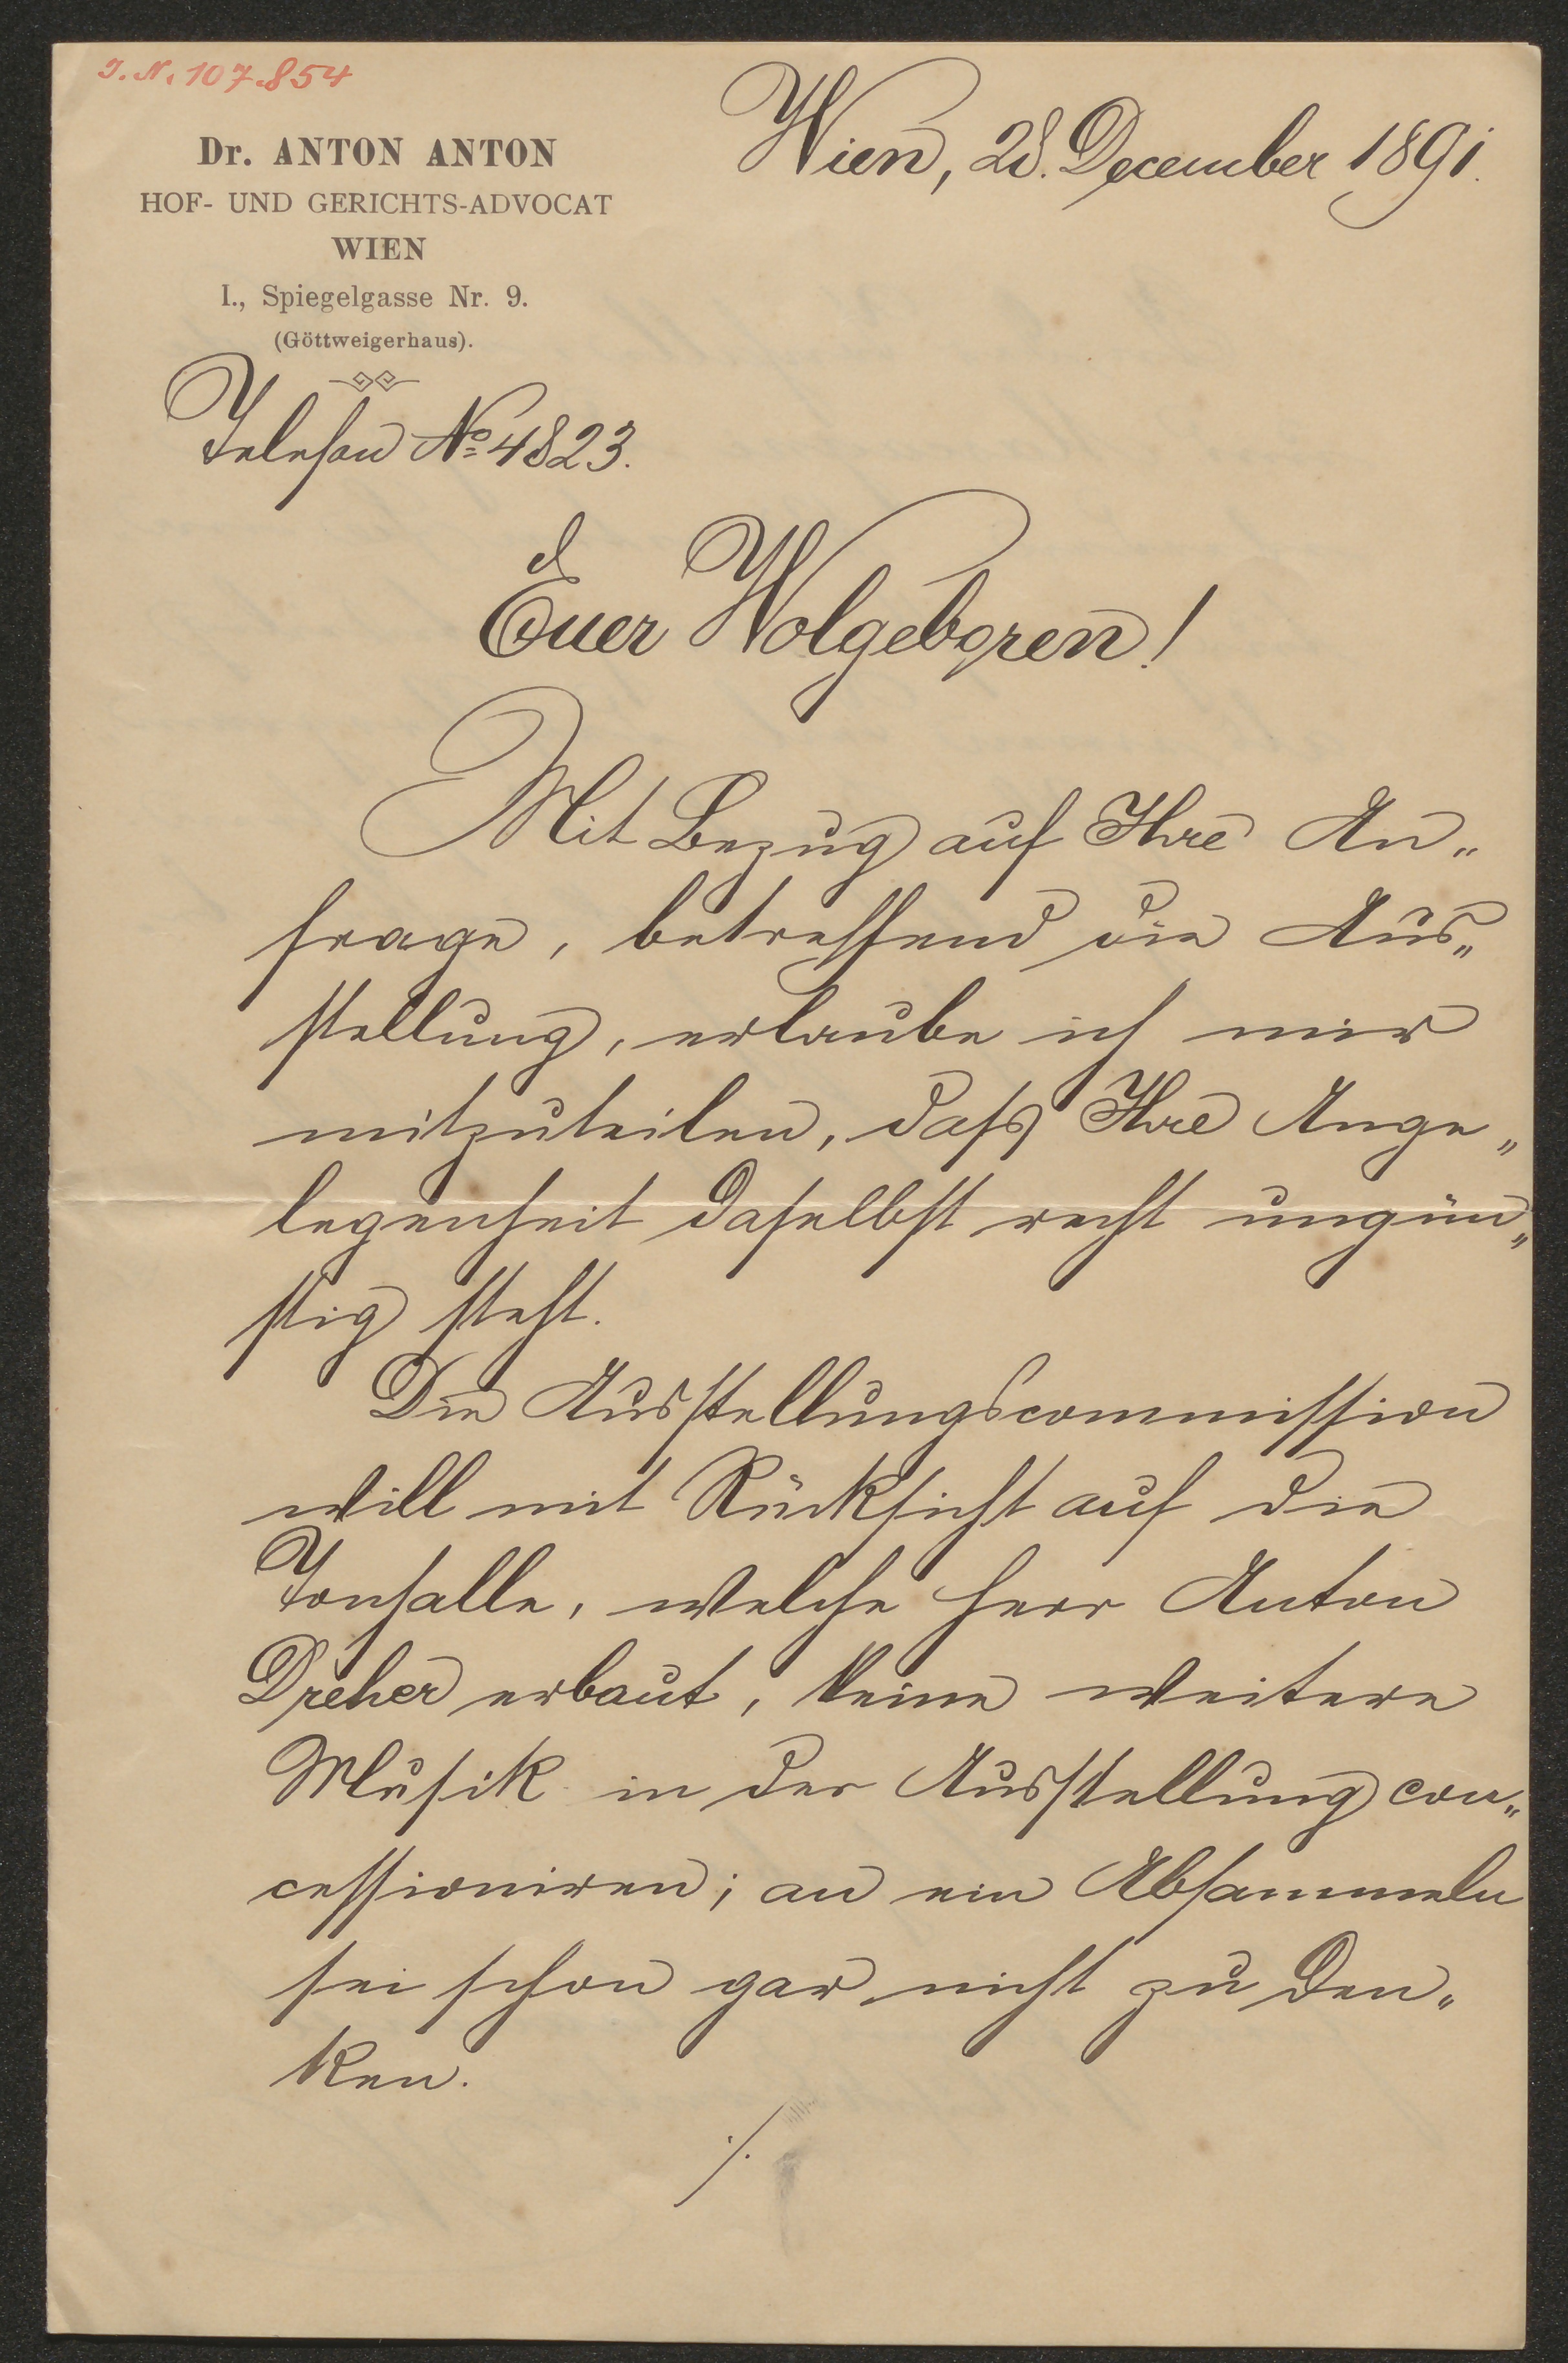 J. N. 107.854
Dr. ANTON ANTON
HOF- UND GERICHTS-ADVOCAT
WIEN
I., Spiegelgasse Nr. 9.
(Göttweigerhaus).
Wien, 28. December 1891.
Telefon No 4823.
Euer Wolgeboren!
Mit Bezug auf Ihre An„
frage, betreffend die Aus„
stellung, erlaube ich mir
mitzuteilen, dass Ihre Ange„
legenheit daselbst recht ungün„
stig steht.
Die Ausstellungscommission
will mit Rücksicht auf die
Tonhalle, welche Herr Anton
Dreher erbaut, keine weitere
Musik in der Ausstellung con„
cessioniren; an ein Absammeln
sei schon gar nicht zu den„
ken.
./.